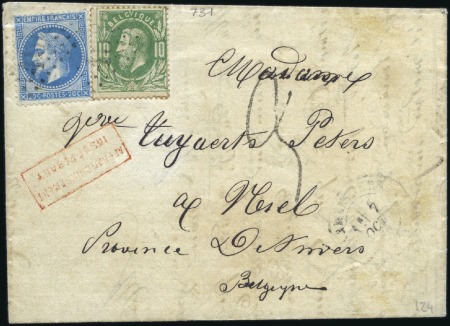 731
EMPIRE FRANÇAIS
20C POSTES 20C
BELGIQUE
10 10
Madame
Tuyaerts Peters
a
Province D'Anvers
Belgique
AFFRANCHISSEMENT
INSUFFISANT
124